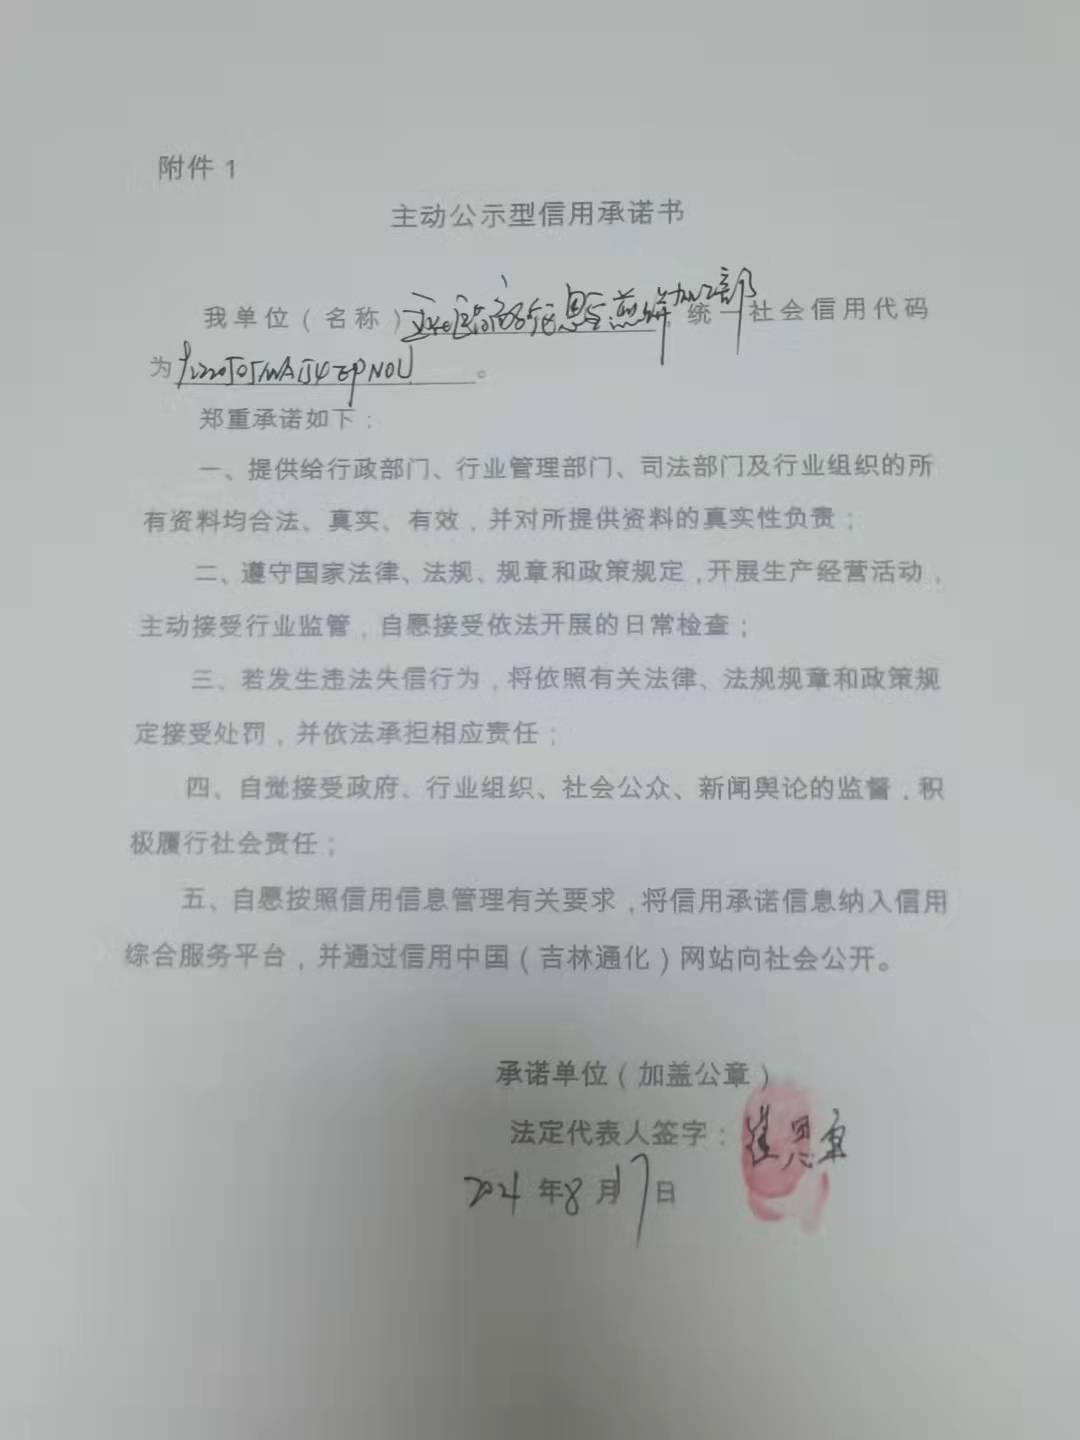 附件 1
主动公示型信用承诺书
我单位（名称）煎饼加工部，统一社会信用代码
为。
郑重承诺如下：
一、提供给行政部门、行业管理部门、司法部门及行业组织的所
有资料均合法、真实、有效，并对所提供资料的真实性负责；
二、遵守国家法律、法规、规章和政策规定，开展生产经营活动，
主动接受行业监管，自愿接受依法开展的日常检查；
三、若发生违法失信行为，将依照有关法律、法规规章和政策规
定接受处罚，并依法承担相应责任；
四、自觉接受政府、行业组织、社会公众、新闻舆论的监督，积
极履行社会责任；
五、自愿按照信用信息管理有关要求，将信用承诺信息纳入信用
综合服务平台，并通过信用中国（吉林通化）网站向社会公开。
承诺单位（加盖公章）
法定代表人签字：崔恩
年8月17日